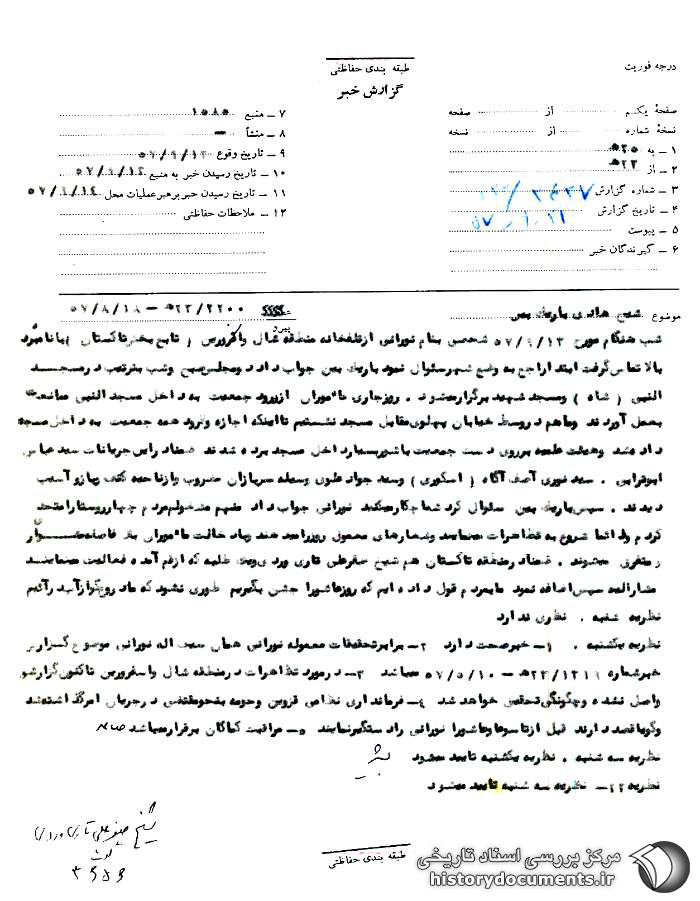 درجه فوریت
طبقه بندی حفاظتی
گزارش خبر
صفحهٔ یکم از صفحه
نسخهٔ شماره از نسخه
۱ ـ به ۳۵ﻫ
۲ ـ از ۲۳ﻫ
۳ ـ شماره گزارش
۴ ـ تاریخ گزارش
۵ ـ پیوست
۶ ـ گیرندگان خبر
۷ ـ منبع ۱۵۸۵
۸ ـ منشأ
۹ ـ تاریخ وقوع ۵۷/۹/۱۳
۱۰ ـ تاریخ رسیدن خبر به منبع
۱۱ ـ تاریخ رسیدن خبر برهبر عملیات محل ۵۷/۹/۱۴
۱۲ ـ ملاحظات حفاظتی
موضوع شیخ هادی باریک بین ۲۳/۲۲۰۰ﻫ – ۵۷/۸/۱۸
پیرو
شب هنگام مورخ ۵۷/۹/۱۳ شخصی بنام نورانی ازتلفخانه منطقه شال واکزورس ( تابع بخش تاکستان ) بانامبرده
بالا تماس گرفت ابتدا راجع به وضع شهر سئوال نمود باریک بین جواب داد دومجلس صبح وشب بترتیب درمسجد
النبی ( شاه ) ومسجد شهید برگزارمیشود . روزجاری مأموران ازورود جمعیت به داخل مسجد النبی ممانعت
بعمل آوردند وماهم دروسط خیابان پهلوی مقابل مسجد نشستیم تااینکه اجازه ورود همه جمعیت به داخل مسجد
داده شد وهیئت علمیه برروی دست جمعیت باشور بسیار داخل مسجد برده شدند ضمناد راین جریانات سید عباس
ابوترابی . سید نوری آصف آگاه ( اسکوری ) وسید جواد علوی وسیله سربازان مضروب وازناحیه کتف وبازو آسیب
دیدند . سپس باریک بین سئوال کرد شما چکارمیکنید نورانی جواب داد منهم مشغولم مردم چهارروستارا متحد
کردم ودائما شروع به تظاهرات مینمایند وشعارهای معمول روزرا میدهند وبا دخالت مأموران به فاصله
متفرق میشوند . ضمناد رمنطقه تاکستان هم شیخ صفرعلی تاری وردی ویک طلبه که ازقم آمده فعالیت مینمایند
مشارالیه سپس اضافه نمود مابمردم قول داده ایم که روزعاشورا جشن بگیریم طوری نشود که ماد روغگو ازآب د رآئیم
نظریه شنبه . نظری ندارد
نظریه یکشنبه . ۱ـ خبرصحت دارد ۲ـ برابرتحقیقات معموله نورانی همان سیف اله نورانی موضوع گزارش
خبرشماره میباشد ۳ـ درمورد تظاهرات درمنطقه شال واسفرورین تاکنون گزارشی
واصل نشده وچگونگی تحقیق خواهد شد ۴ـ فرمانداری نظامی قزوین وحومه بنحومقتضی درجریان امرگذاشته شد
وگویاقصد دارند قبل ازتاسوعاوعاشورا نورانی رادستگیرنمایند ۵ـ مراقبت کماکان برقرارمیباشد
نظریه سه شنبه . نظریه یکشنبه تایید میشود
نظریه ۲۲ـ نظریه سه شنبه تایید میشود
طبقه بندی حفاظتی
مرکز بررسی اسناد تاریخی
historydocuments.ir